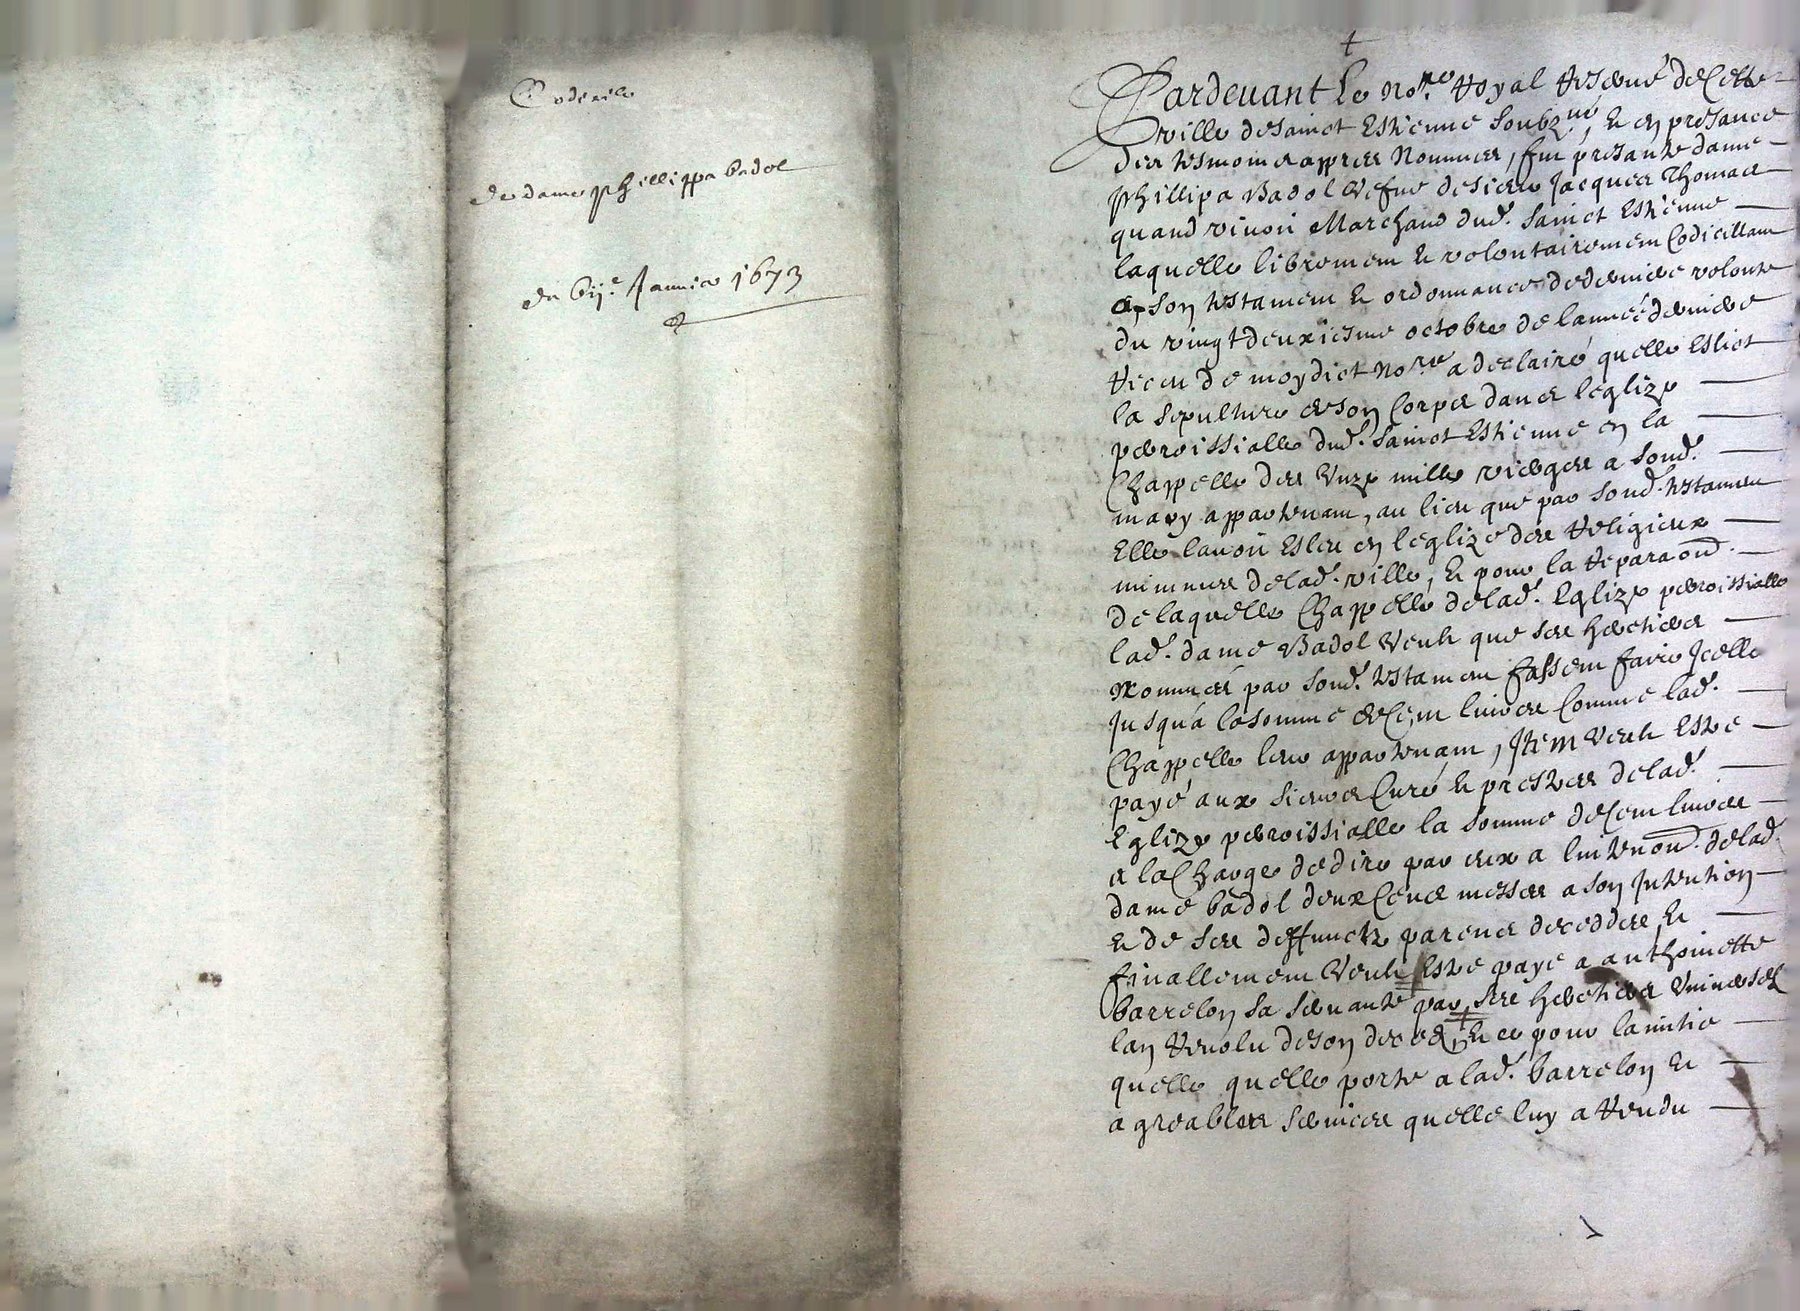 Codicile
de dame phillippa badol
du bije. Januier 1673
Pardeuant le nore. Royal reserué de cette
ville de sainct Estienne soubzné, et en presance
des tesmoins appres nommes, fut presante dame
phillipa Badol vefue de sieur Jacques Thomas
quand viuoit Marchand dud. sainct Estienne
laquelle librement et volontairement Codicillant
a son testament et ordonnance de derniere volonte
du vingtdeuxiesme octobre de lannéé derniere
receu de moydict nore a declairé quelle Eslict
la sepulture de son Corps dans leglize
perroissialle dud. sainct Estienne en la
Chappelle des Unze mille vierges a sond.
mary appartenant, au lieu que par sond. testament
Elle lauoit Esleu en leglize des Religieux
minimes de lad. ville, et pour la reparaon.
de laquelle Chappelle de lad. Eglize perroissialle
lad. dame Badol Veult que ses heritiers
nommés par sond. testament fassent faire Jcelle
jusqua la somme de Cent liures Comme lad.
Chappelle leur appartenant, Jtem Veult Estre
payé aux sieurs Curé et prestres de lad.
Eglize perroissialle la somme de Cent liures
a la Charge de dire par eux a lintenon. de lad.
dame badol deux Cens messes a son Jntention
et de ses deffunctz parens deceddes, Et
finallement Veult Estre payé a anthoinette
barrelon sa seruante par ses heritiers Vniuersels
lan reuolu de son deces, et ce pour lamitie
quelle quelle porte a lad. barrelon et
agreables seruices quelle luy a rendu